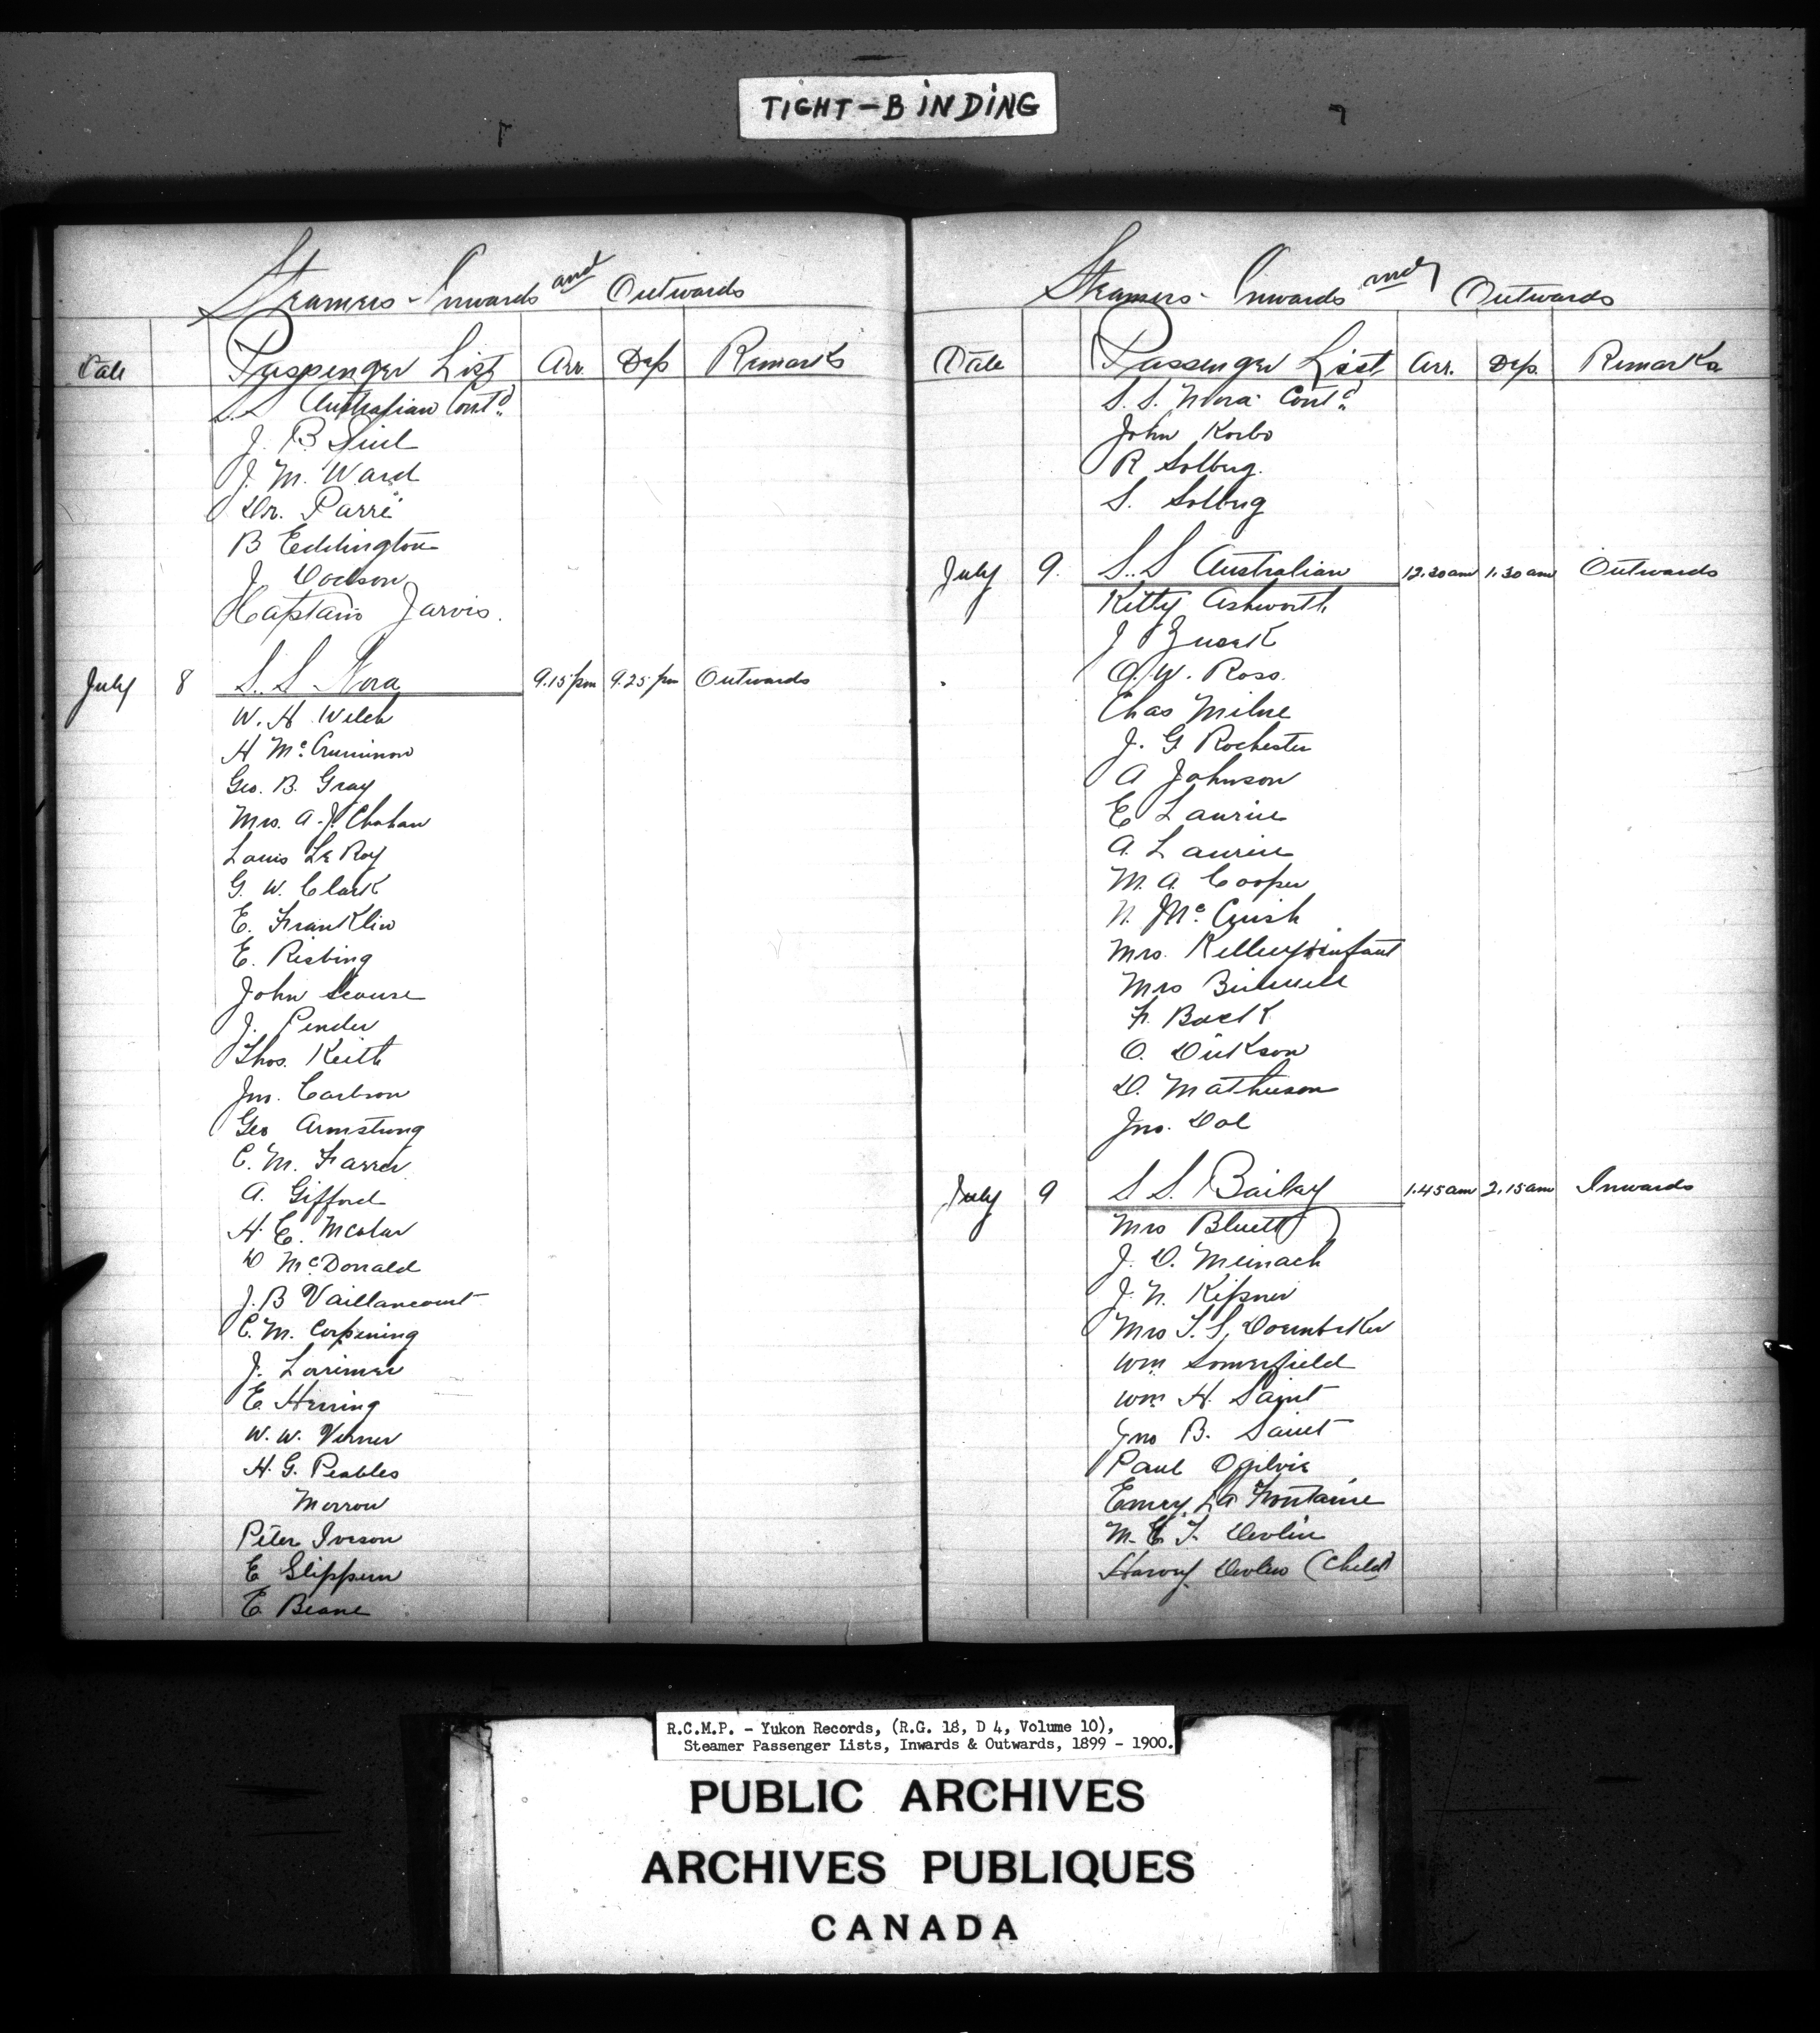 TIGHT-BINDING
Steamers - Inwards and Outwards
Date Passenger List Arr. Dep Remarks
S.S Australian Contd
J. B.
J. M. Ward
Dr. Parré
B Eddington
J. Dodson
Captain Jarvis.
July 8 S.S Nora 9.15 pm 9.25 pm Outwards
W. H. Welch
H McCrimmon
Geo. B. Gray
Mrs. A. J. Chahan
Louis Le Roy
G. W. Clark
E. Franklin
E. Risbing
John Scouse
J. Pender
Thos. Keith
Jno. Carlson
Geo Armstrong
C. M. Farrer
A. Gifford
H. E.
D McDonald
J. B Vaillancourt
C. M. Corpening
J. Lorimer
E. Herring
W. W. Verner
H. G. Peables
Morrow
Peter Iverson
E Slippern
E. Beane
Steamers - Inwards and Outwards
Date Passenger List Arr. Dep. Remarks
S. S. Nora Contd
John Korbo
R Solberg.
S. Solberg
July 9. S.S Australian 12.30 am 1.30 am Outwards
Kitty Ashworth
J Quark
O. W. Ross.
Chas Milne
J. G. Rochester
A Johnson
E Laurin
A. Laurin
M. A. Cooper
N. McCuish
Mrs. Kelley & infant
Mrs
F. Back
O. Dickson
D. Mathieson
Jno. Dol
July 9 S S. Bailey 1.45 am 2.15 am Inwards
Mrs Bluett
J. D. Meinach
J. N. Kissner
Mrs T. S. Doernbeker
Wm Somerfield
Wm H. Saint
Jno B. Saint
Paul Ogilvie
Emery La Fontaine
M. E. T. Devlin
Harvey Devlin (Child)
R.C.M.P. - Yukon Records, (R.G. 18, D 4, Volume 10),
Steamer Passenger Lists, Inwards & Outwards, 1899 - 1900.
PUBLIC ARCHIVES
ARCHIVES PUBLIQUES
CANADA